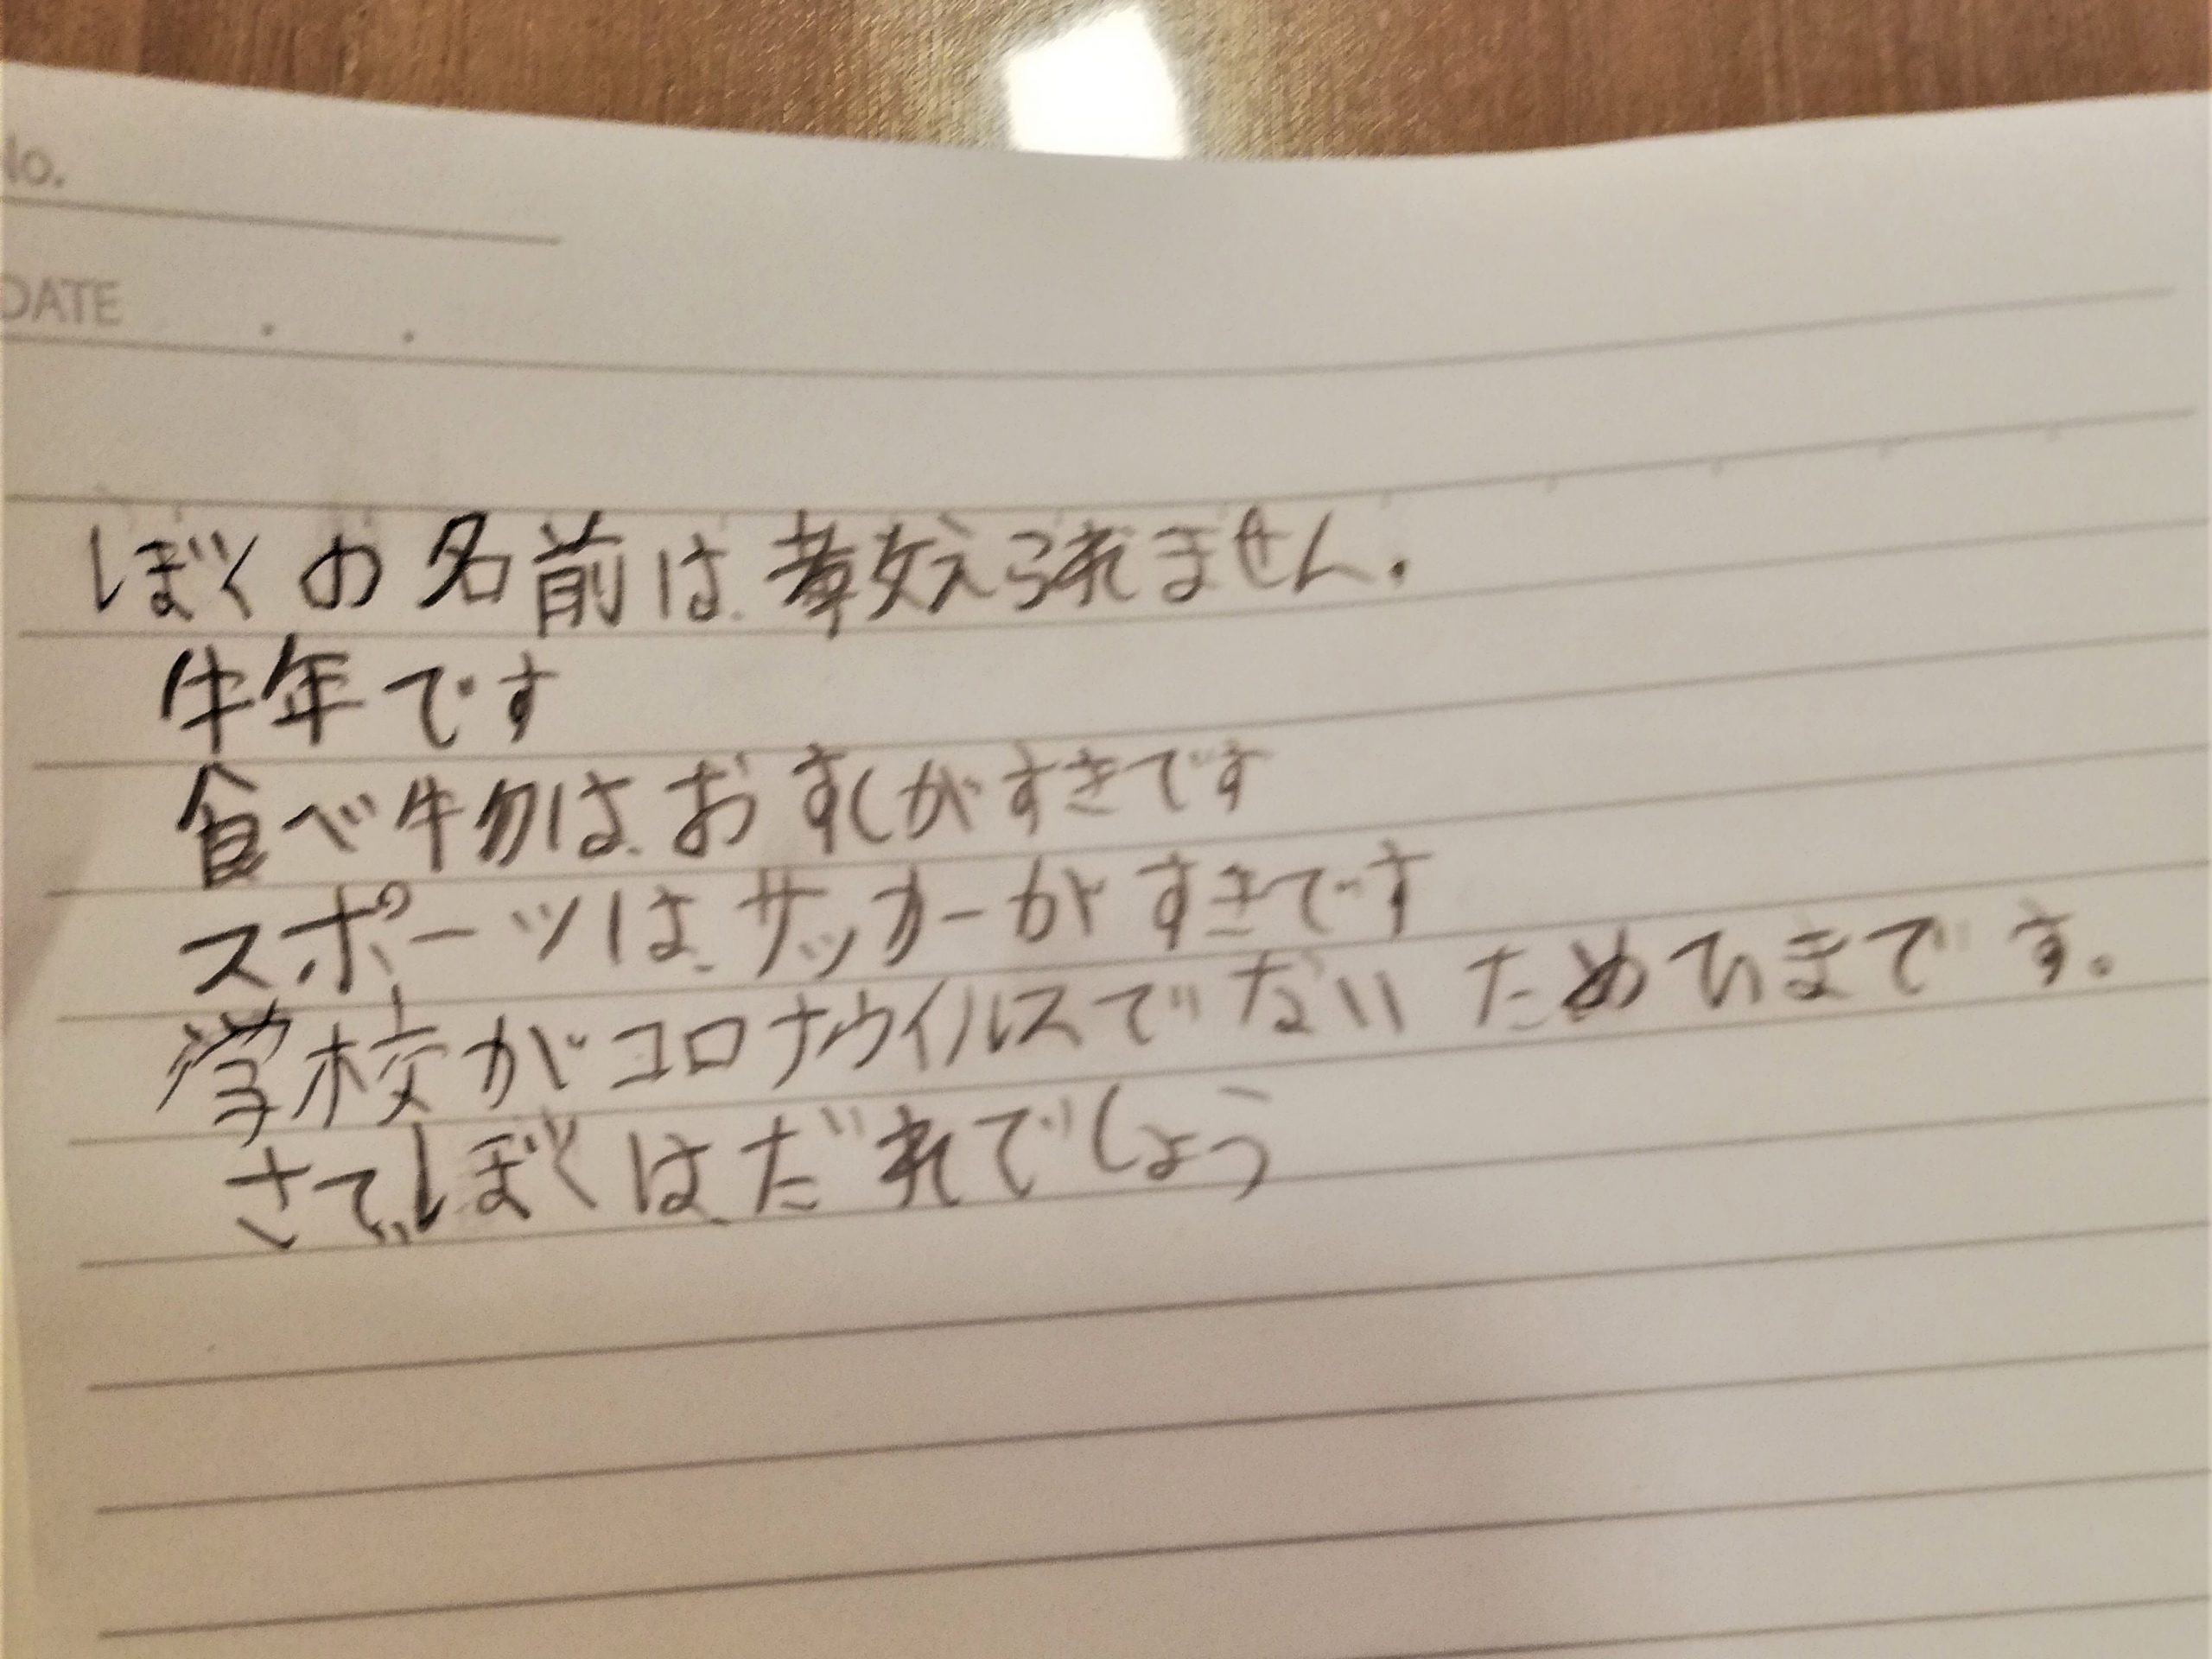 No.
DATE . .
ぼくの名前は教えられません.
牛年です
食べ物はおすしがすきです
スポーツはサッカーがすきです
学校がコロナウイルスでないためひまです。
さてぼくはだれでしょう